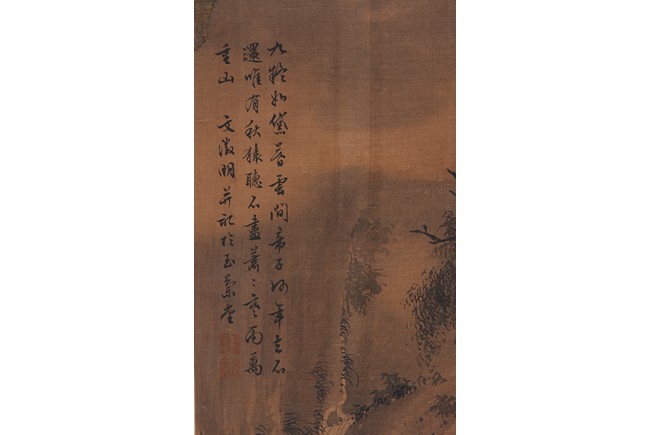 九疑如黛暮雲間帝子何年去不
還唯有秋猿聽不盡蕭〻寒雨萬
重山　文徵明并記於玉蘭堂